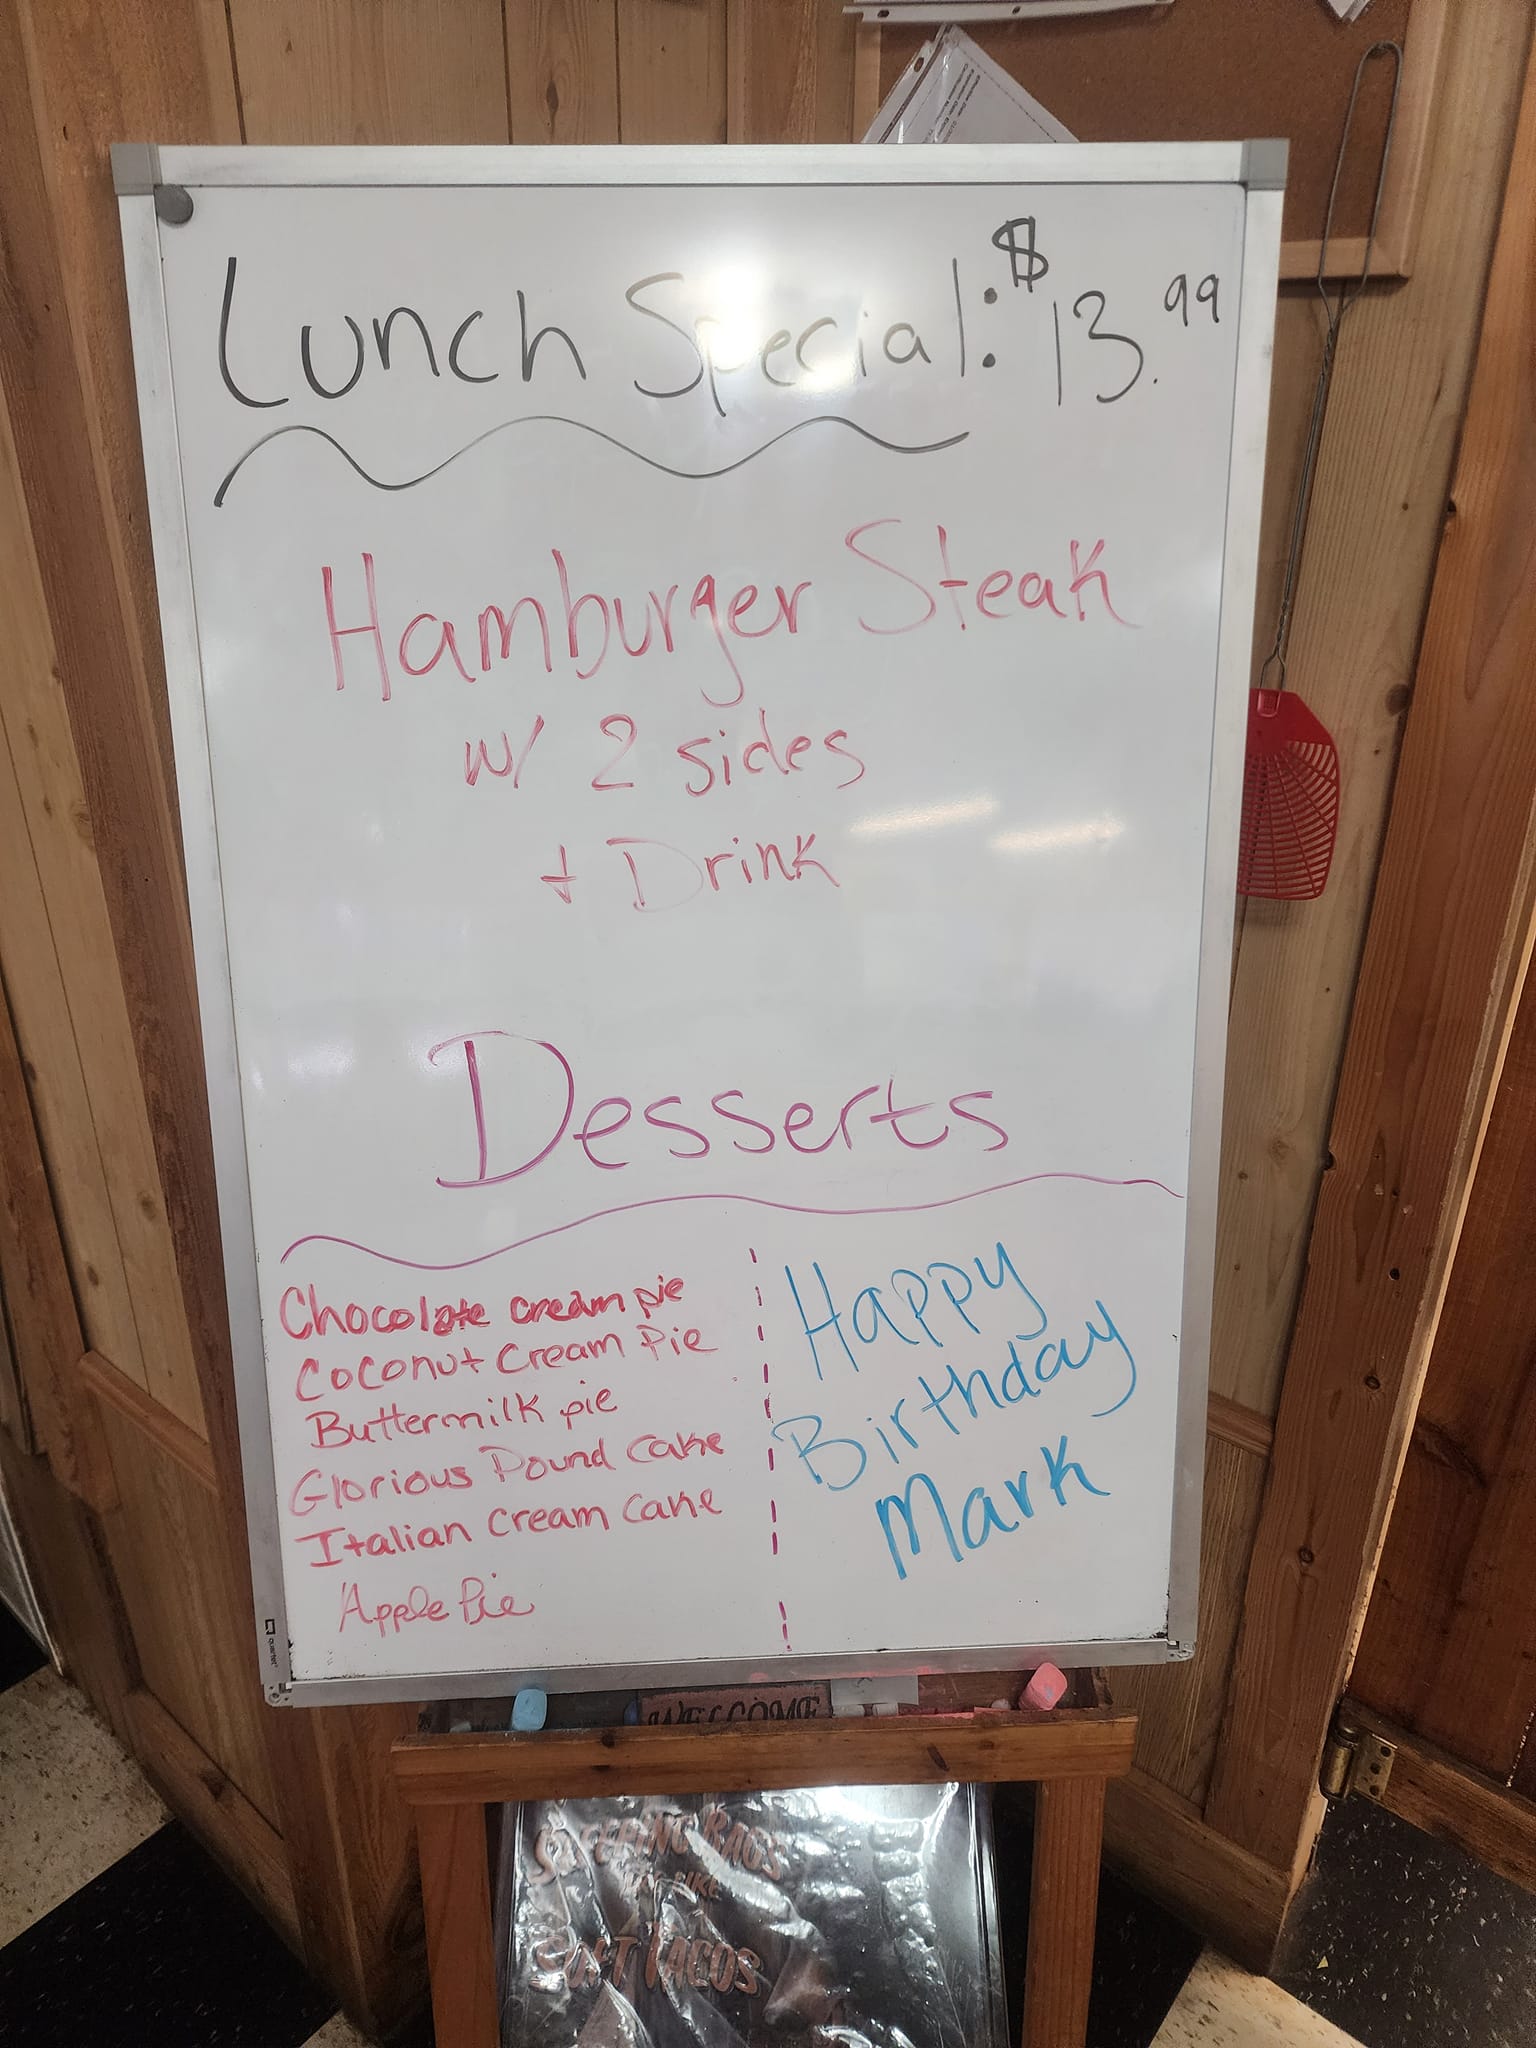 Lunch Special: $13.99
Hamburger Steak
w/ 2 sides
+ Drink
Desserts
Chocolate cream pie
Coconut Cream Pie
Buttermilk pie
Glorious Pound Cake
Italian Cream Cake
Apple Pie
Happy
Birthday
Mark
quartet
WELCOME
SOFT TACOS